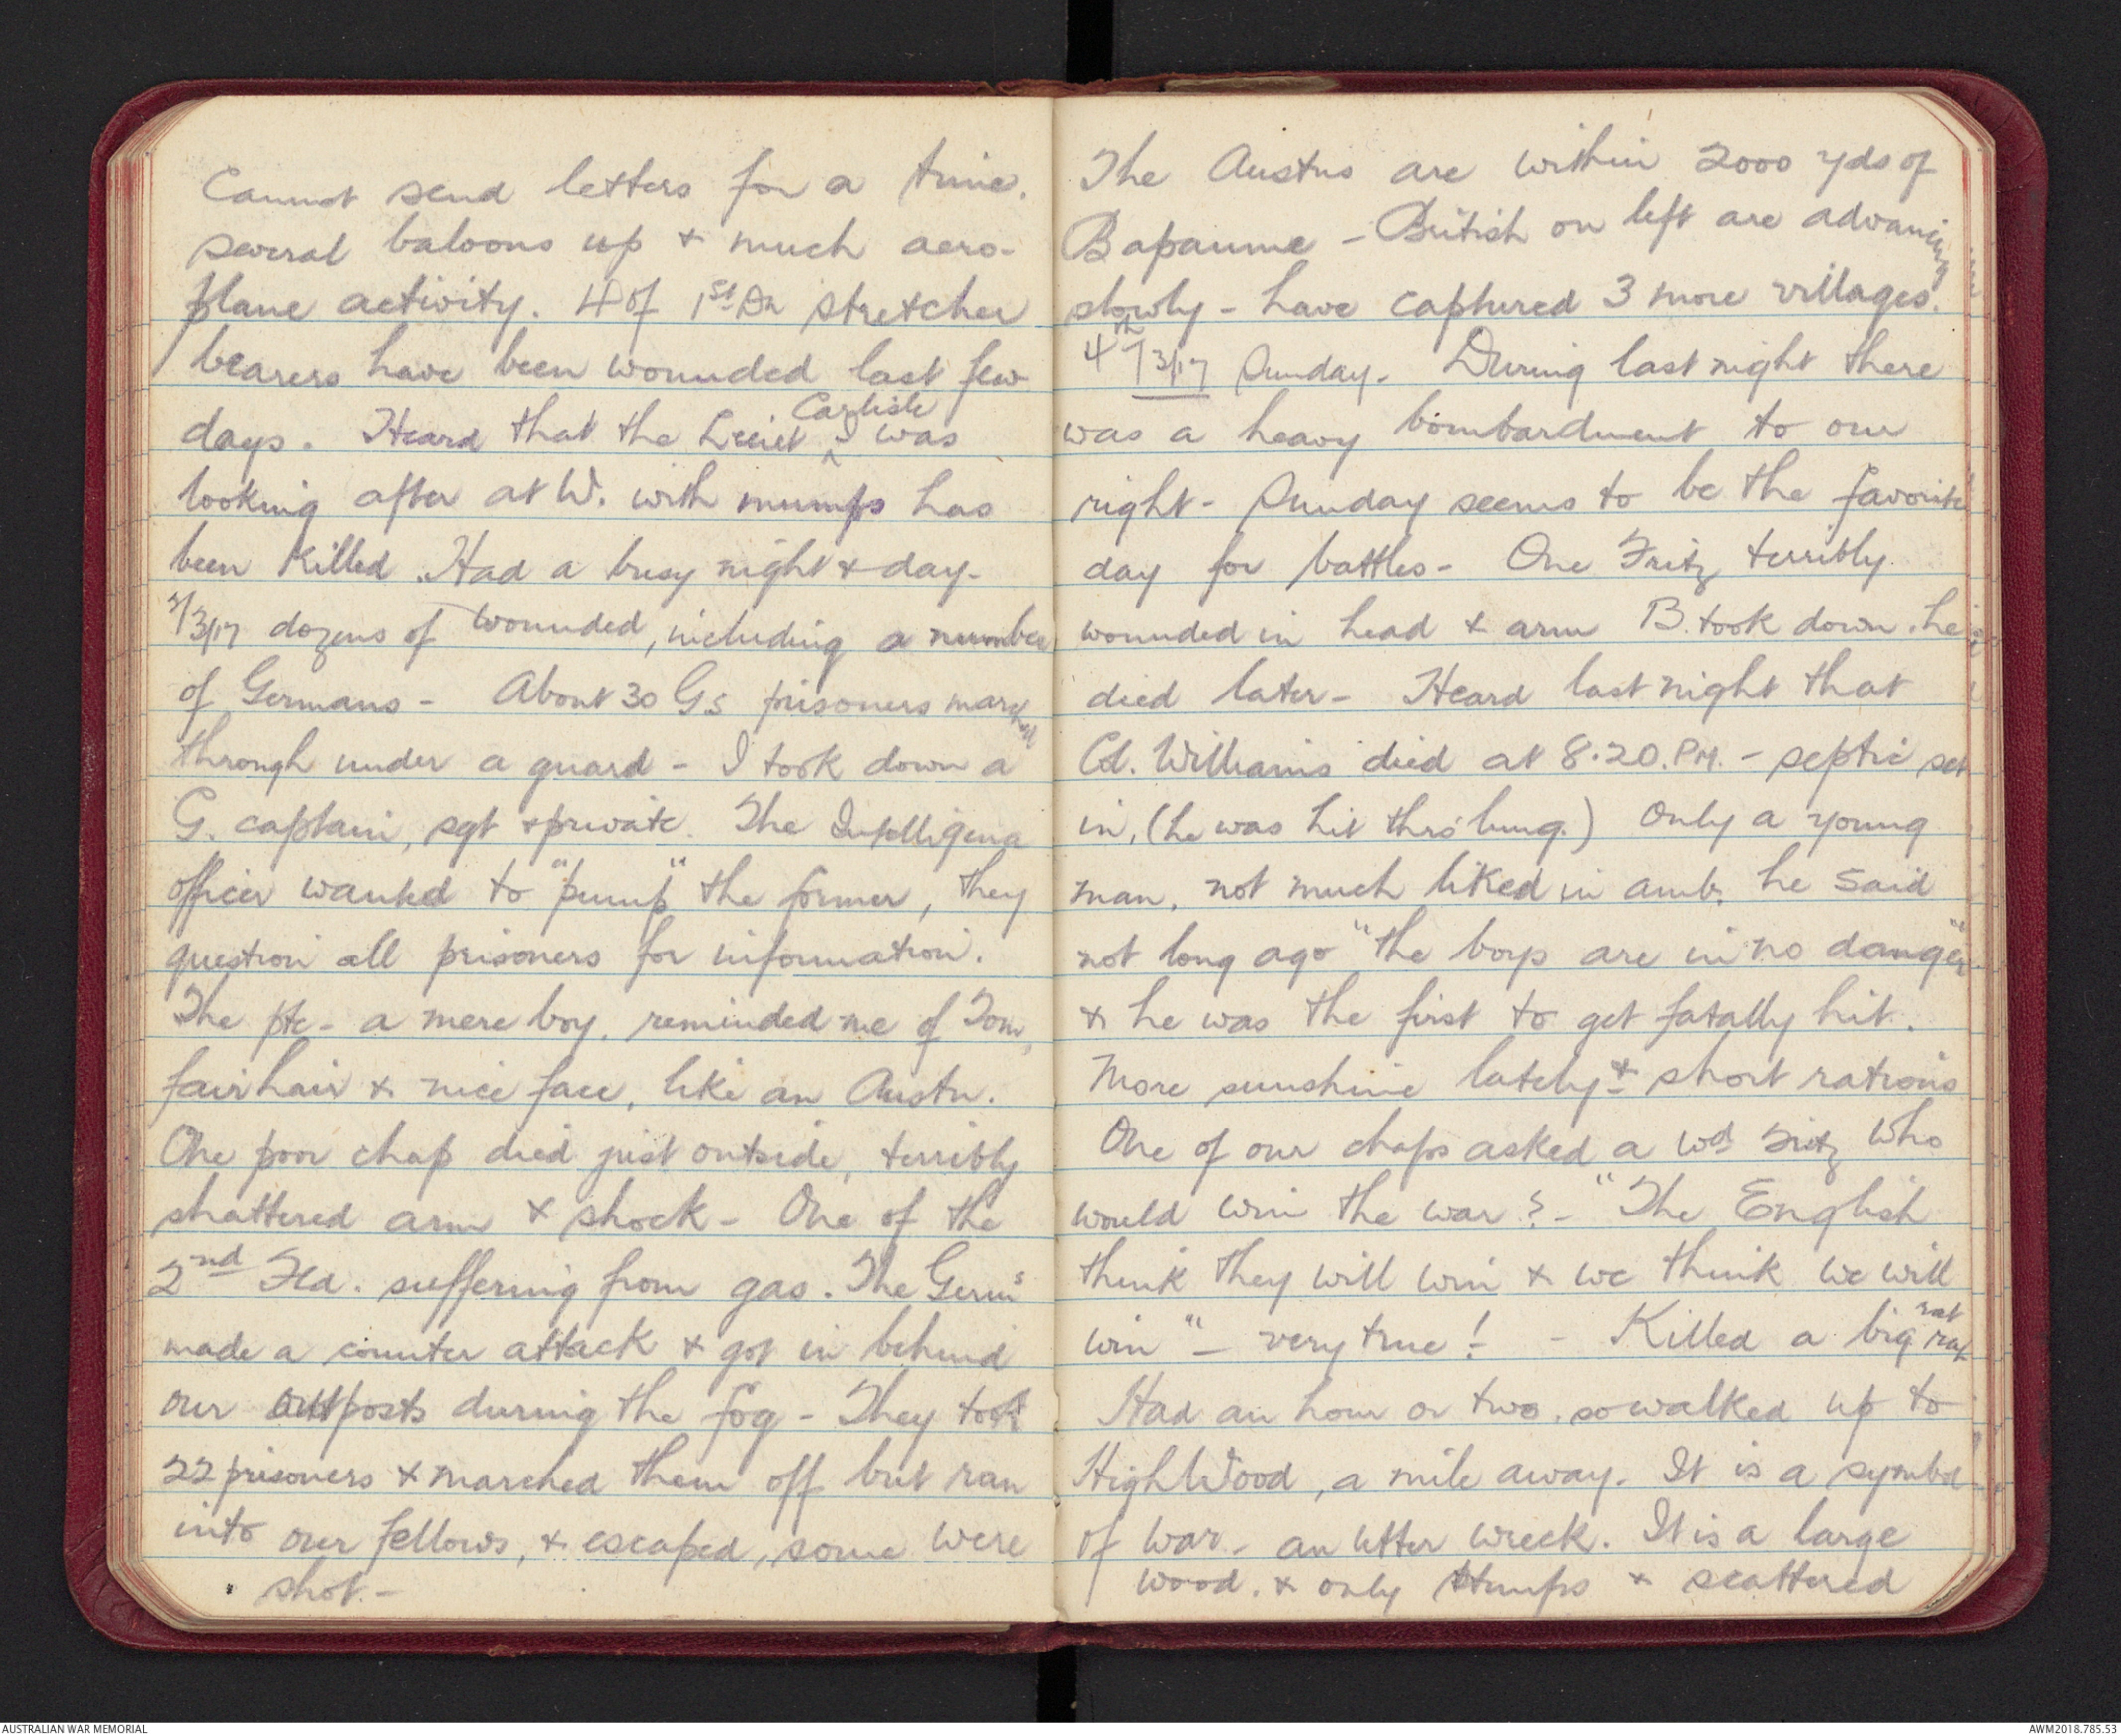 Cannot send letters for a time.
several baloons up & much aero-
plane activity. 4 of 1st Dn stretcher
bearers have been wounded last few
days. Heard that the Lieut Carlisle I was
looking after at W. with mumps has
been killed. Had a busy night & day.
/3/17 dozens of wounded, including a number
of Germans - About 30 Gs prisoners marched
through under a guard - I took down a
G. captain, sgt & private. The Intelligence
officer wanted to "pump" the former, they
question all prisoners for information.
The pte - a mere boy. reminded me of Tom,
fair hair & nice face, like an Austn.
One poor chap died just outside, terribly
shattered arm & shock - One of the
2nd Fld. suffering from gas. The Germs
made a counter attack & got in behind
our outposts during the fog - They took
22 prisoners & marched them off but ran
into our fellows, & escaped, some were
shot. -
The Austns are within 2000 yds of
Bapaume - British on left are advancing
slowly - have captured 3 more villages.
4th/3/17 Sunday. During last night there
was a heavy bombardment to our
right - Sunday seems to be the favorite
day for battles - One Fritz terribly
wounded in head & arm B. took down. he
died later - Heard last night that
Col. Williams died at 8.20.PM. - septic set
in, (he was hit thro' lung.) Only a young
man, not much liked in amb. he said
not long ago "the boys are in no danger"
& he was the first to get fatally hit.
More sunshine lately & short rations
One of our chaps asked a wd Fritz who
would win the war? - "The English
think they will win & we think we will
win" - very true! - Killed a big rat rat
Had an hour or two, so walked up to
High Wood, a mile away. It is a symbol
of war - an utter wreck. It is a large
wood. & only stumps & scattered
AUSTRALIAN WAR MEMORIAL
AWM2018.785.53